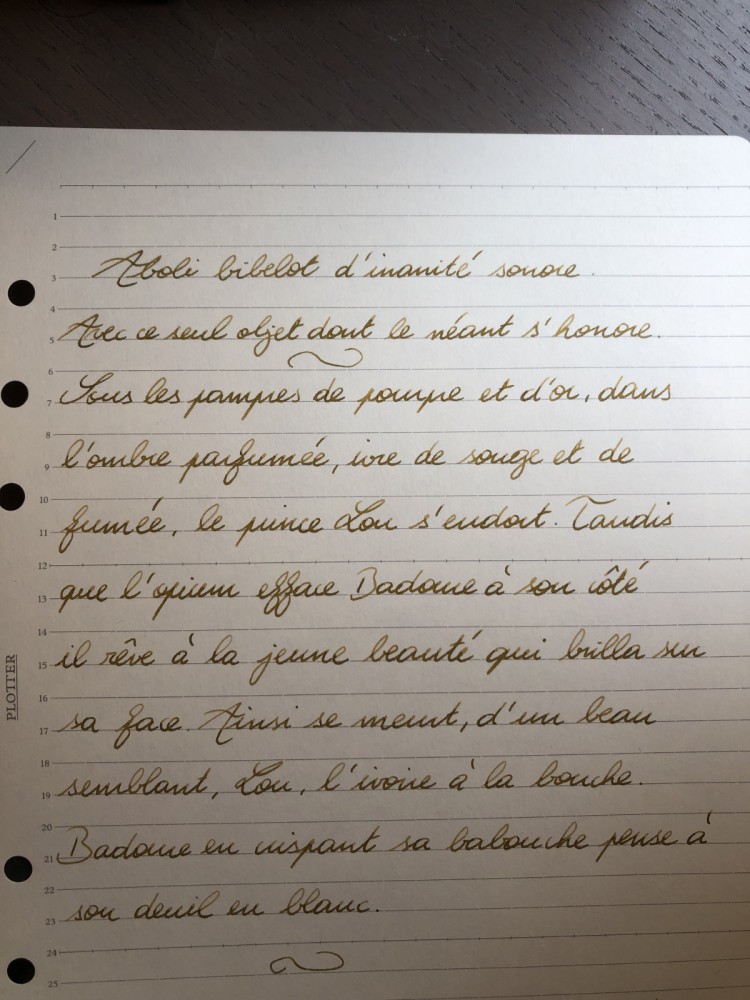 Aboli bibelot d'inanité sonore.
Avec ce seul objet dont le néant s'honore.
Sous les pampres de pourpe et d'or, dans
l'ombre parfumée, ivre de songe et de
fumée, le prince Lou s'endort. Tandis
que l'opium efface Badoure à son côté
il rêve à la jeune beauté qui brilla sur
sa face. Ainsi se meurt, d'un beau
semblant, Lou, l'ivoire à la bouche.
Badoure en crispant sa babouche pense à
son deuil en blanc.
PLOTTER
1
2
3
4
5
6
7
8
9
10
11
12
13
14
15
16
17
18
19
20
21
22
23
24
25